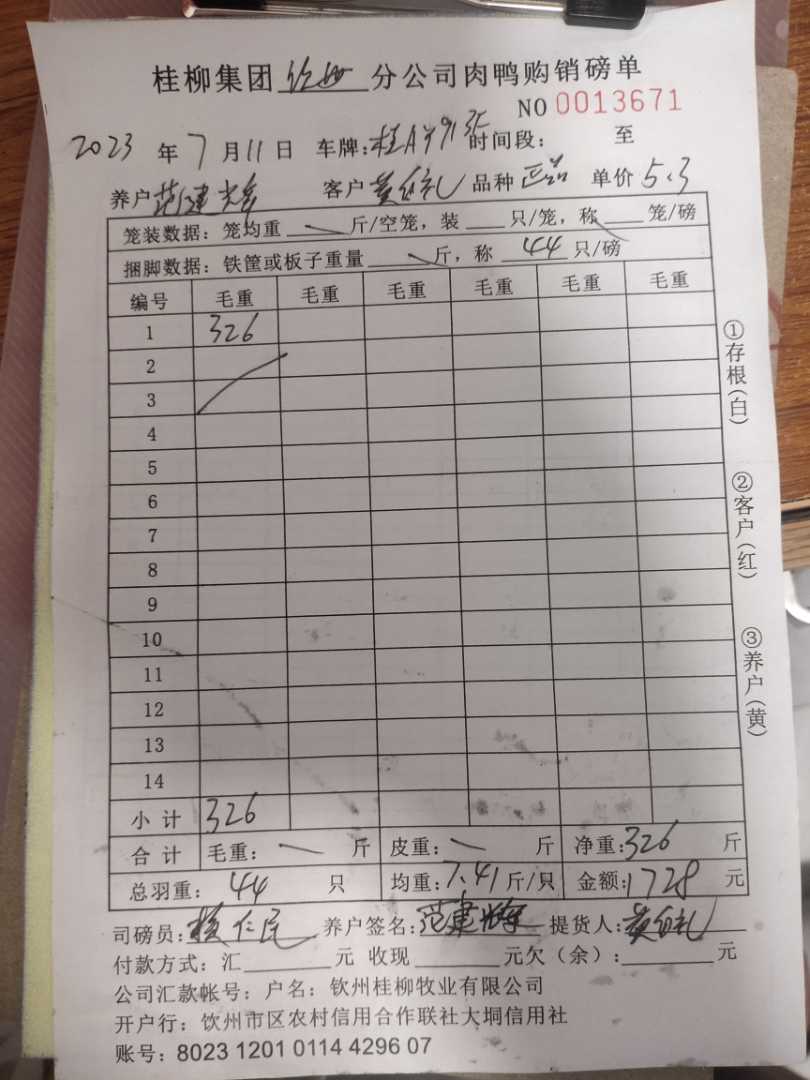 桂柳集团 分公司肉鸭购销磅单
NO 0013671
2023 年 7 月 11 日 车牌: 桂A 时间段: 至
养户 范建 客户 黄 礼 品种 正品 单价 5.3
笼装数据: 笼均重 斤/空笼, 装 只/笼, 称 笼/磅
捆脚数据: 铁筐或板子重量 斤, 称 44 只/磅
编号 毛重 毛重 毛重 毛重 毛重 毛重
1 326
2
3
4
5
6
7
8
9
10
11
12
13
14
小计 326
合计 毛重: 斤 皮重: 斤 净重: 326 斤
总羽重: 44 只 均重: 7.41 斤/只 金额: 1728 元
司磅员: 仁民 养户签名: 范建 提货人: 黄 礼
付款方式: 汇 元 收现 元欠(余): 元
公司汇款帐号: 户名: 钦州桂柳牧业有限公司
开户行: 饮州市区农村信用合作联社大垌信用社
账号: 8023 1201 0114 4296 07
①存根(白)
②客户(红)
③养户(黄)